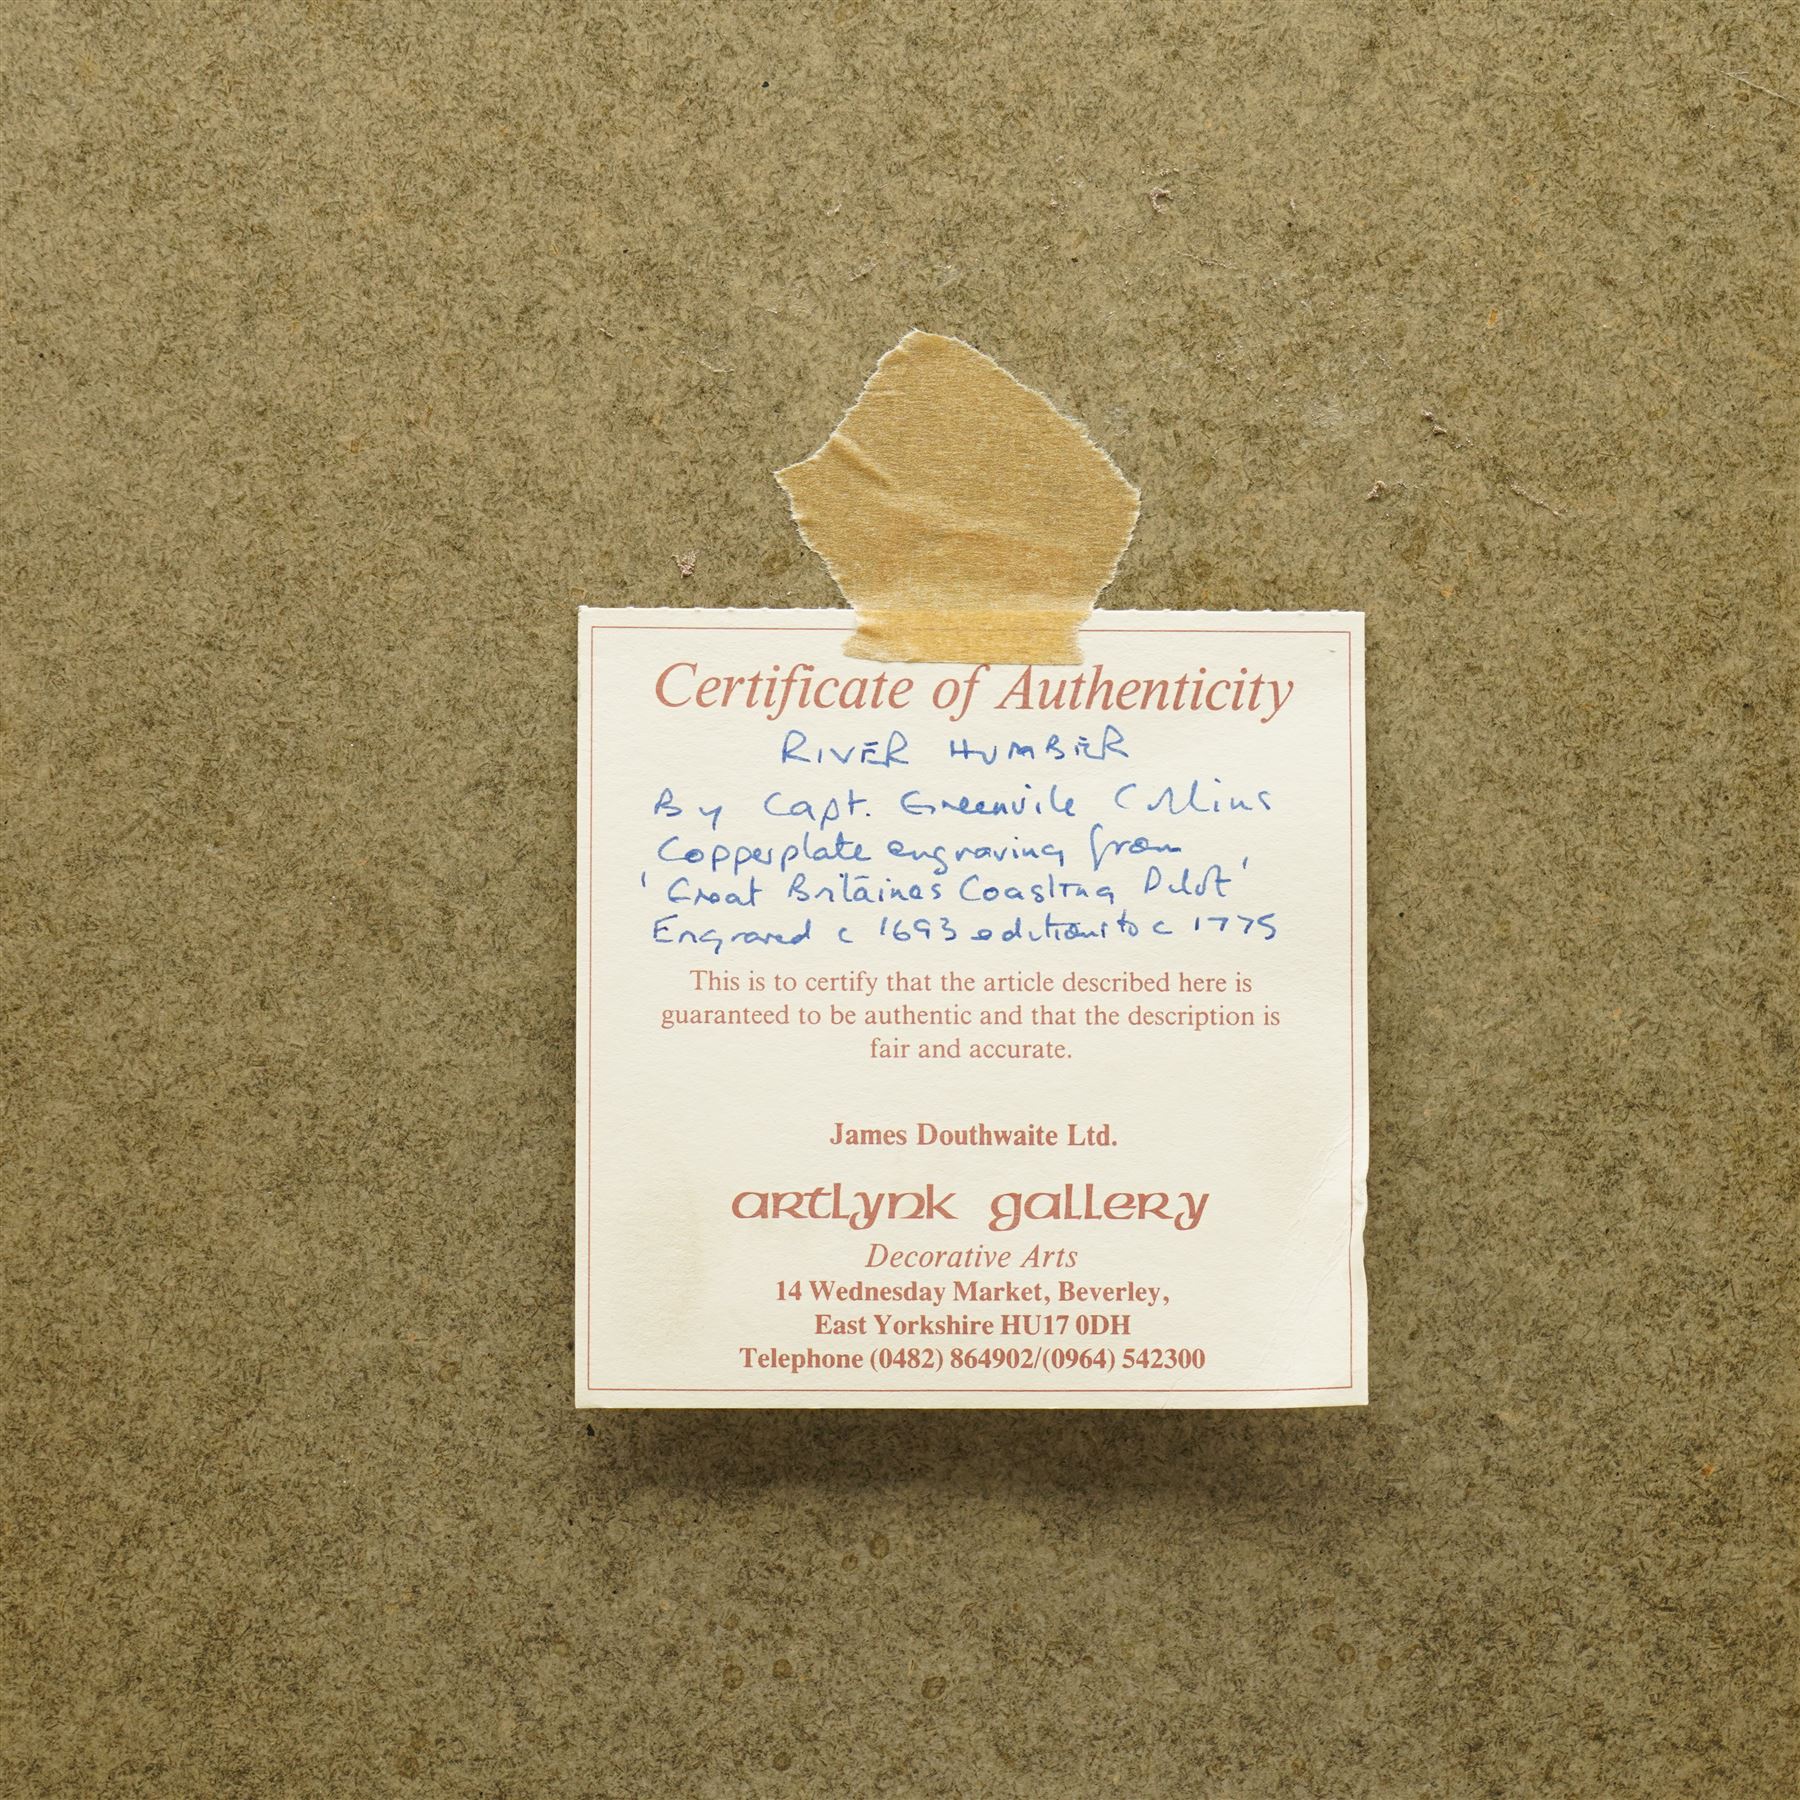 Certificate of Authenticity
RIVER HUMBER
By Capt. Greenvile Collins
Copperplate engraving from
'Great Britaines Coasting Pilot'
Engraved c 1693 editions to c 1775
This is to certify that the article described here is
guaranteed to be authentic and that the description is
fair and accurate.
James Douthwaite Ltd.
artlynk gallery
Decorative Arts
14 Wednesday Market, Beverley,
East Yorkshire HU17 0DH
Telephone (0482) 864902/(0964) 542300